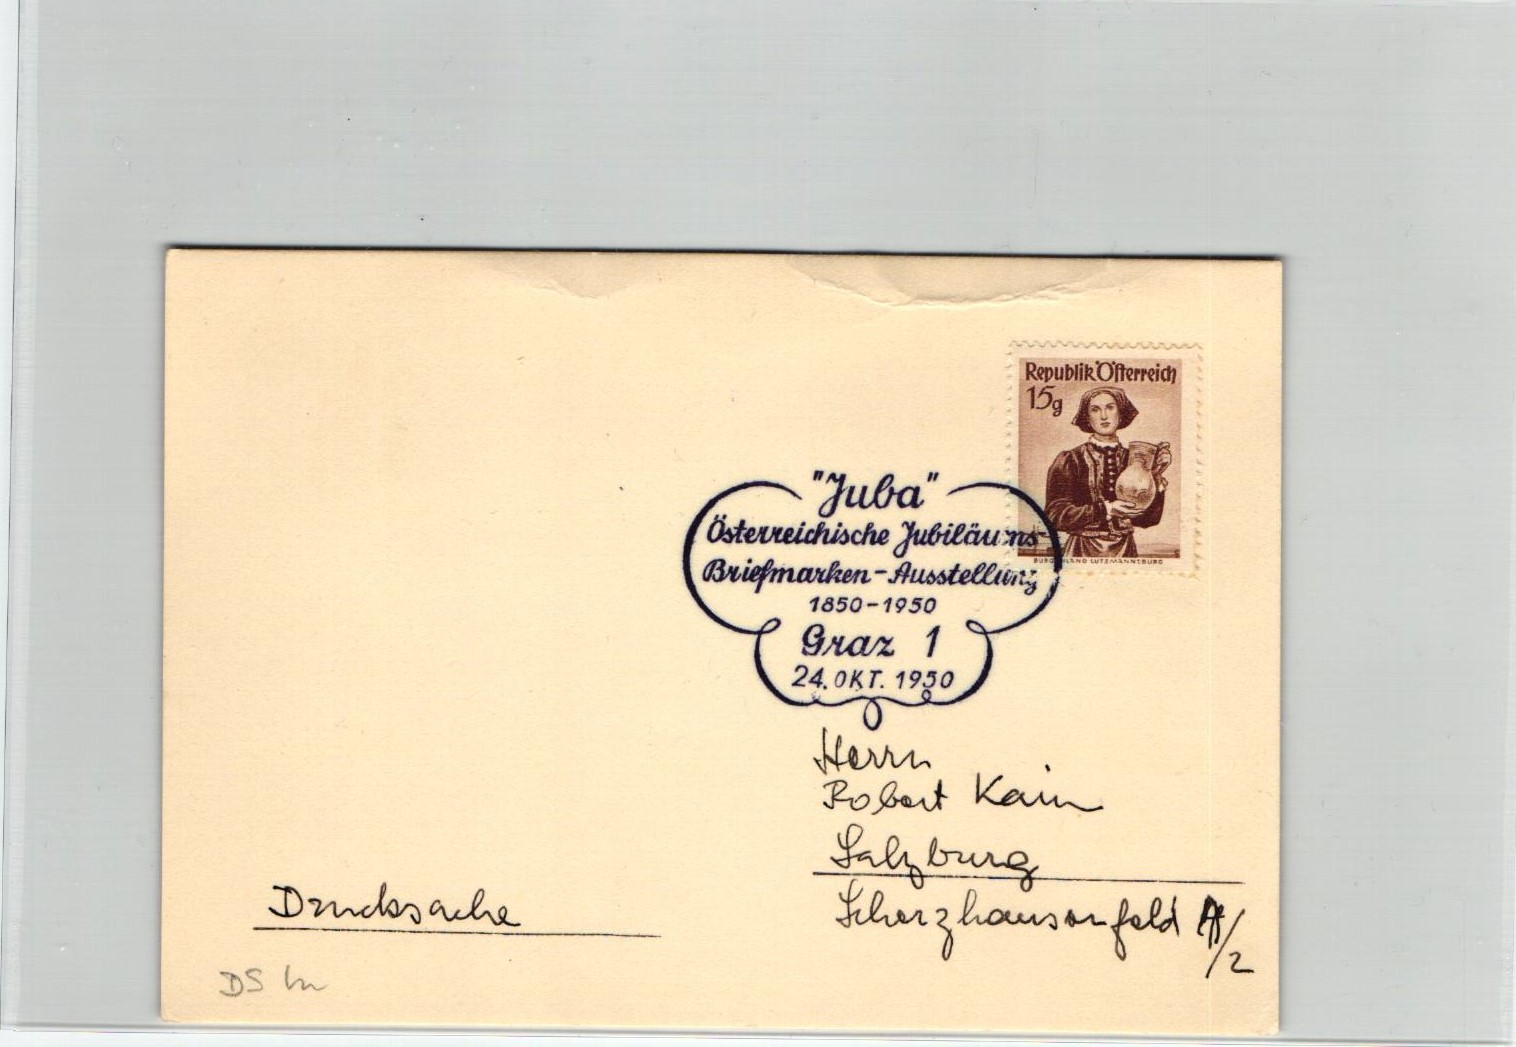 Republik Österreich
15g
BURGENLAND LUTZMANNSBURG
"Juba"
Österreichische Jubiläums-
Briefmarken-Ausstellung
1850-1950
Graz 1
24. OKT. 1950
Herrn
Robert Kain
Salzburg
Scherzhausenfeld A/2
Drucksache
DS